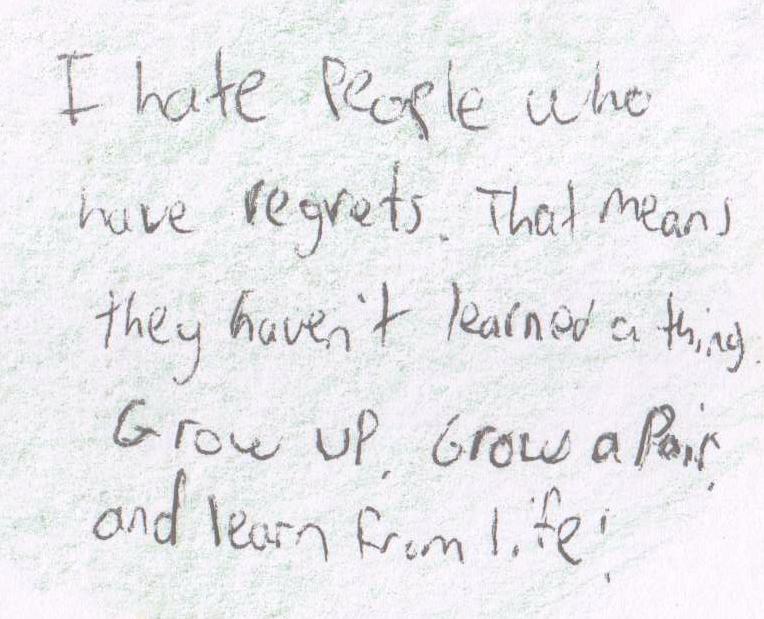 I hate People who
have regrets. That means
they haven't learned a thing.
Grow up, Grow a Pair,
and learn from life!